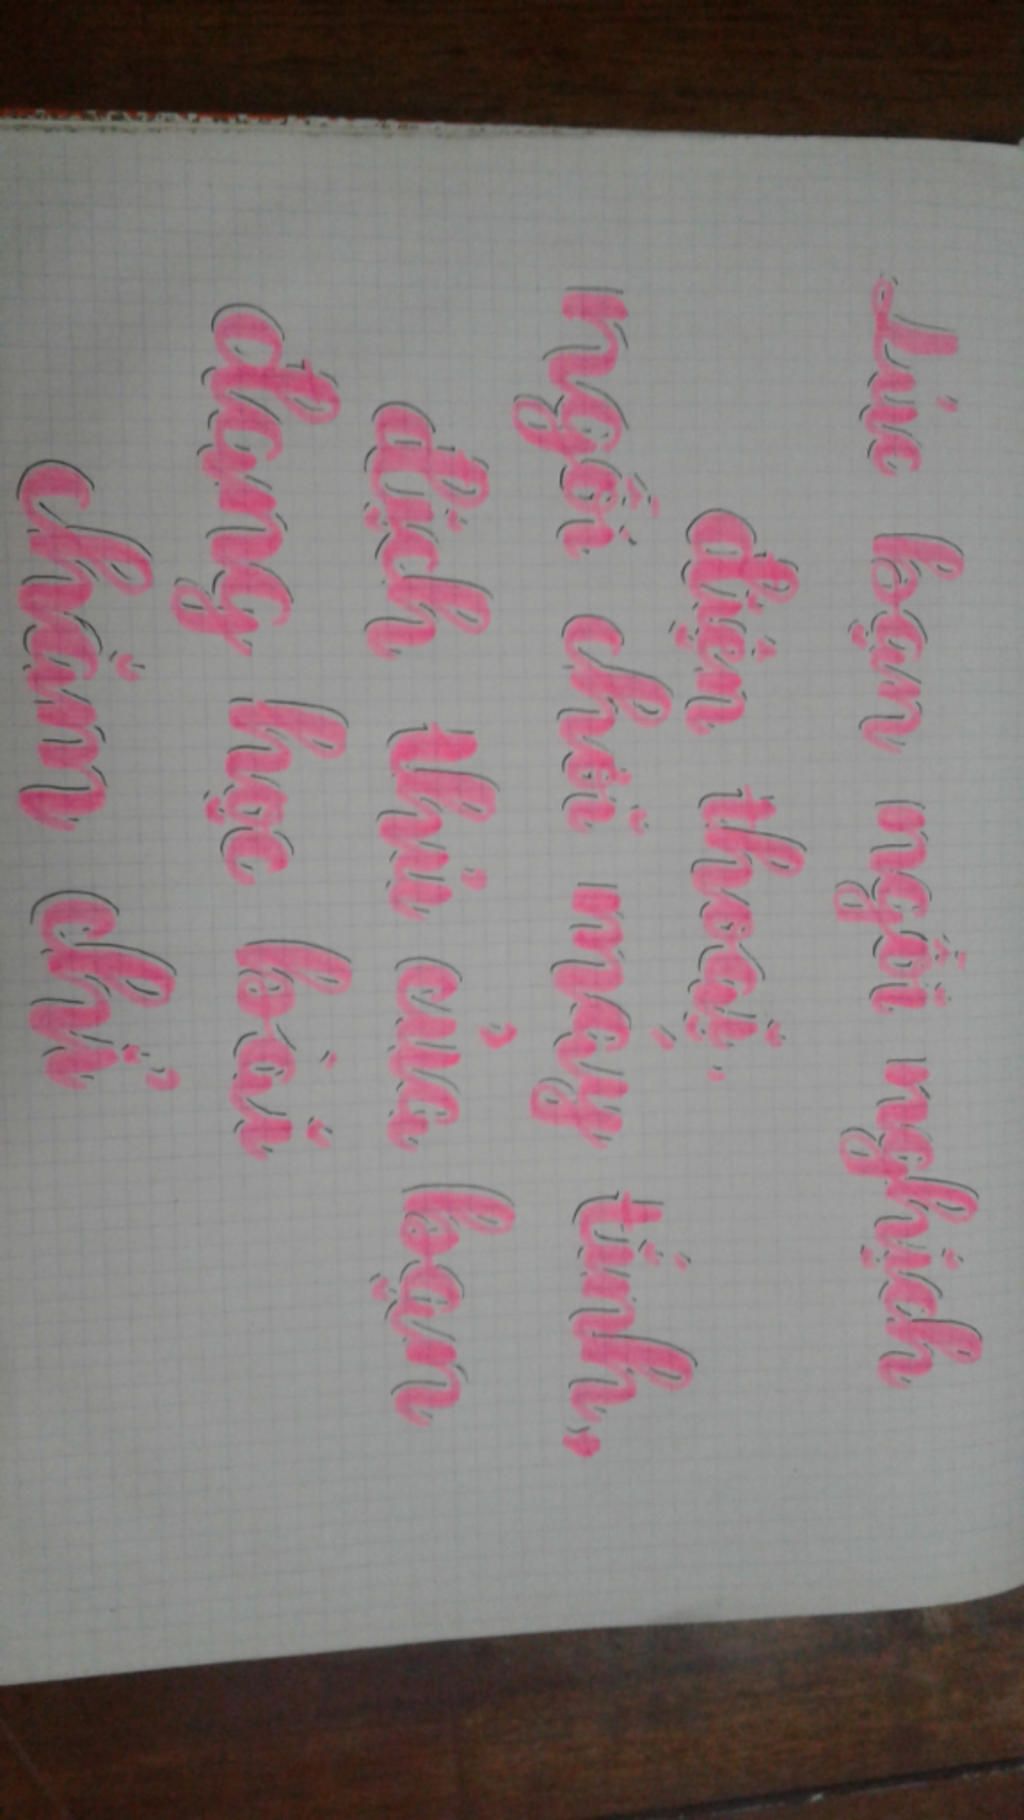 Lúc bạn ngồi nghịch
điện thoại,
ngồi chơi máy tính,
địch thủ của bạn
đang học bài
chăm chỉ